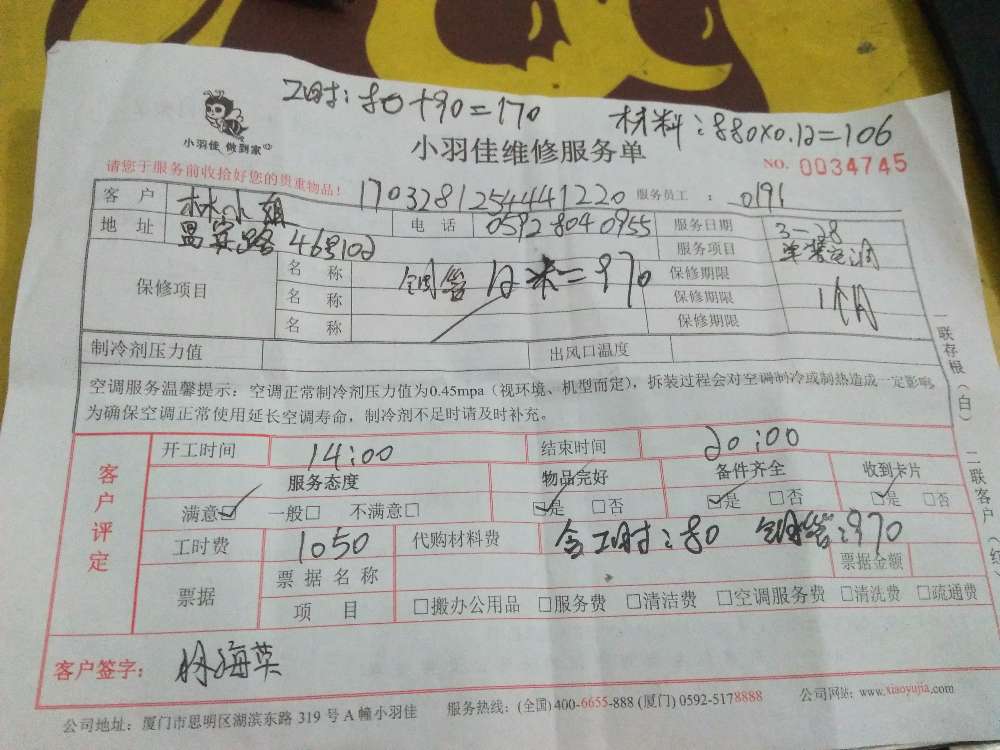 工时:80+90=170
材料:880×0.12=106
小羽佳 做到家
小羽佳维修服务单
请您于服务前收拾好您的贵重物品!
NO. 0034745
1703281254441220 服务员工 : 0191
客 户 林小姐
地 址 46号102 电 话 0592 8040955 服务日期 3-28
服务项目
保修项目 名 称 铜管 12米=970 保修期限 1个月
名 称 保修期限
名 称 保修期限
制冷剂压力值 出风口温度
空调服务温馨提示:空调正常制冷剂压力值为0.45mpa(视环境、机型而定),拆装过程会对空调制冷或制热造成一定影响,
为确保空调正常使用延长空调寿命,制冷剂不足时请及时补充。
客户评定
开工时间 14:00 结束时间 20:00
服务态度 物品完好 备件齐全 收到卡片
满意☑ 一般□ 不满意□ ☑是 □否 ☑是 □否 ☑是 □否
工时费 1050 代购材料费 含工时:80 铜管:970
票据 票 据 名 称 票据金额
项 目 □搬办公用品 □服务费 □清洁费 □空调服务费 □清洗费 □疏通费
客户签字: 林海英
公司地址:厦门市思明区湖滨东路 319 号 A 幢小羽佳 服务热线:(全国) 400-6655-888 (厦门) 0592-5178888 公司网站:www.xiaoyujia.com
一联存根(白)
二联客户(红)